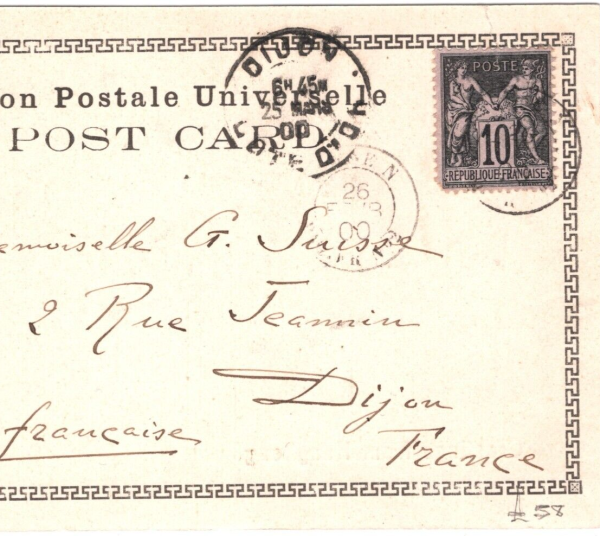 on Postale Universelle
POST CARD
DIJON
6H 45M
25 MARS
00
COTE D'OR
26
00
POSTE
10
RÉPUBLIQUE FRANÇAISE
emoiselle G. Suisse
2 Rue Jeannin
Dijon
française
France
£58